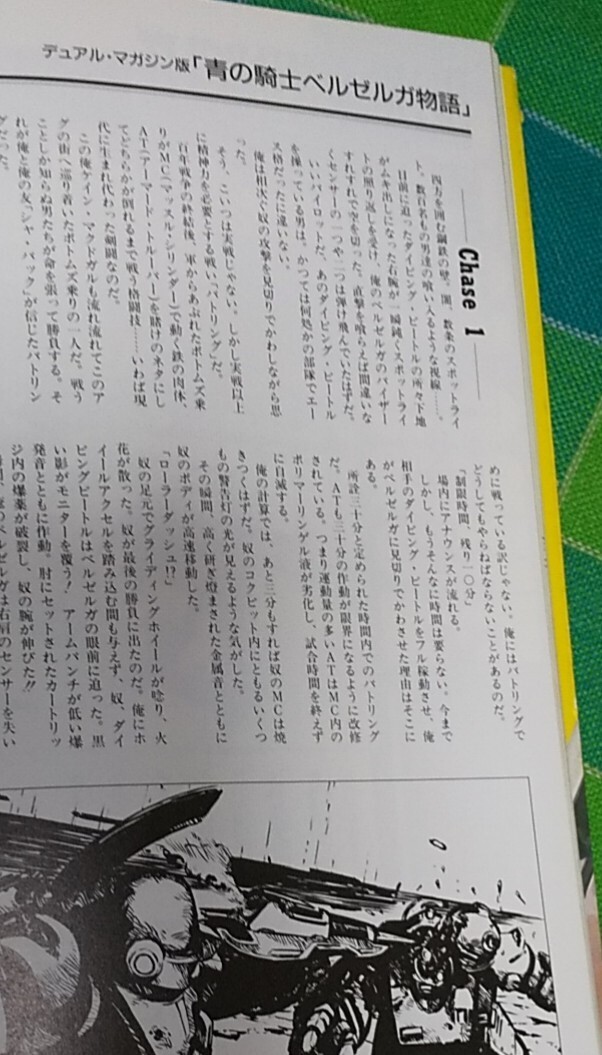 デュアル・マガジン版「青の騎士ベルゼルガ物語」
Chase 1
四方を囲む鋼鉄の壁。闇、数条のスポットライ
ト。数百名もの男達の喰い入るような視線……。
目前に迫ったダイビング・ビートルの所々下地
がムキ出しになった右腕が、一瞬鈍くスポットライ
トの照り返しを受け、俺のベルゼルガのバイザー
すれすれで空を切った。直撃を喰らえば間違いな
くセンサーの一つや二つは弾け飛んでいたはずだ。
いいパイロットだ、あのダイビング・ビートル
を操っている男は、かつては何処かの部隊でエー
ス格だったに違いない。
俺は相次ぐ奴の攻撃を見切りでかわしながら思
った。
そう、こいつは実戦じゃない。しかし実戦以上
に精神力を必要とする戦い「バトリング」だ。
百年戦争の終結後、軍からあぶれたボトムズ乗
りがMC(マッスル・シリンダー)で動く鉄の肉体、
AT(アーマード・トルーパー)を賭けのネタにし
てどちらかが倒れるまで戦う格闘技……いわば現
代に生まれ代わった剣闘なのだ。
この俺ケイン・マクドガルも流れ流れてこのア
グの街へ巡り着いたボトムズ乗りの一人だ。戦う
ことしか知らぬ男たちが命を張って勝負する。そ
れが俺と俺の友、シャ・バックが信じたバトリン
グだった。
めに戦っている訳じゃない。俺にはバトリングで
どうしてもやらねばならないことがあるのだ。
「制限時間、残り一〇分」
場内にアナウンスが流れる。
しかし、もうそんなに時間は要らない。今まで
相手のダイビング・ビートルをフル稼動させ、俺
がベルゼルガに見切りでかわさせた理由はそこに
ある。
所詮三十分と定められた時間内でのバトリング
だ。ATも三十分の作動が限界になるように改修
されている。つまり運動量の多いATはMC内の
ポリマーリンゲル液が劣化し、試合時間を終えず
に自滅する。
俺の計算では、あと三分もすれば奴のMCは焼
きつくはずだ。奴のコクピット内にともるいくつ
もの警告灯の光が見えるような気がした。
その瞬間、高く研ぎ燈まされた金属音とともに
奴のボディが高速移動した。
「ローラーダッシュ!?」
奴の足元でグライディングホイールが唸り、火
花が散った。奴が最後の勝負に出たのだ。俺にホ
イールアクセルを踏み込む間も与えず、奴、ダイ
ビングビートルはベルゼルガの眼前に迫った。黒
い影がモニターを覆う! アームパンチが低い爆
発音とともに作動、肘にセットされたカートリッ
ジ内の爆薬が破裂し、奴の腕が伸びた!!
ベルゼルガは右肩のセンサーを失い